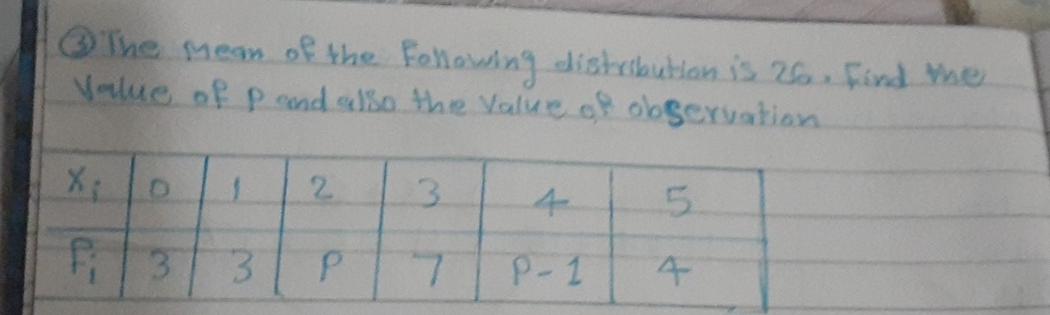 ③ The mean of the Following distribution is 26. Find the
Value of P and also the Value of observation
xi 0 1 2 3 4 5
Fi 3 3 P 7 P-1 4